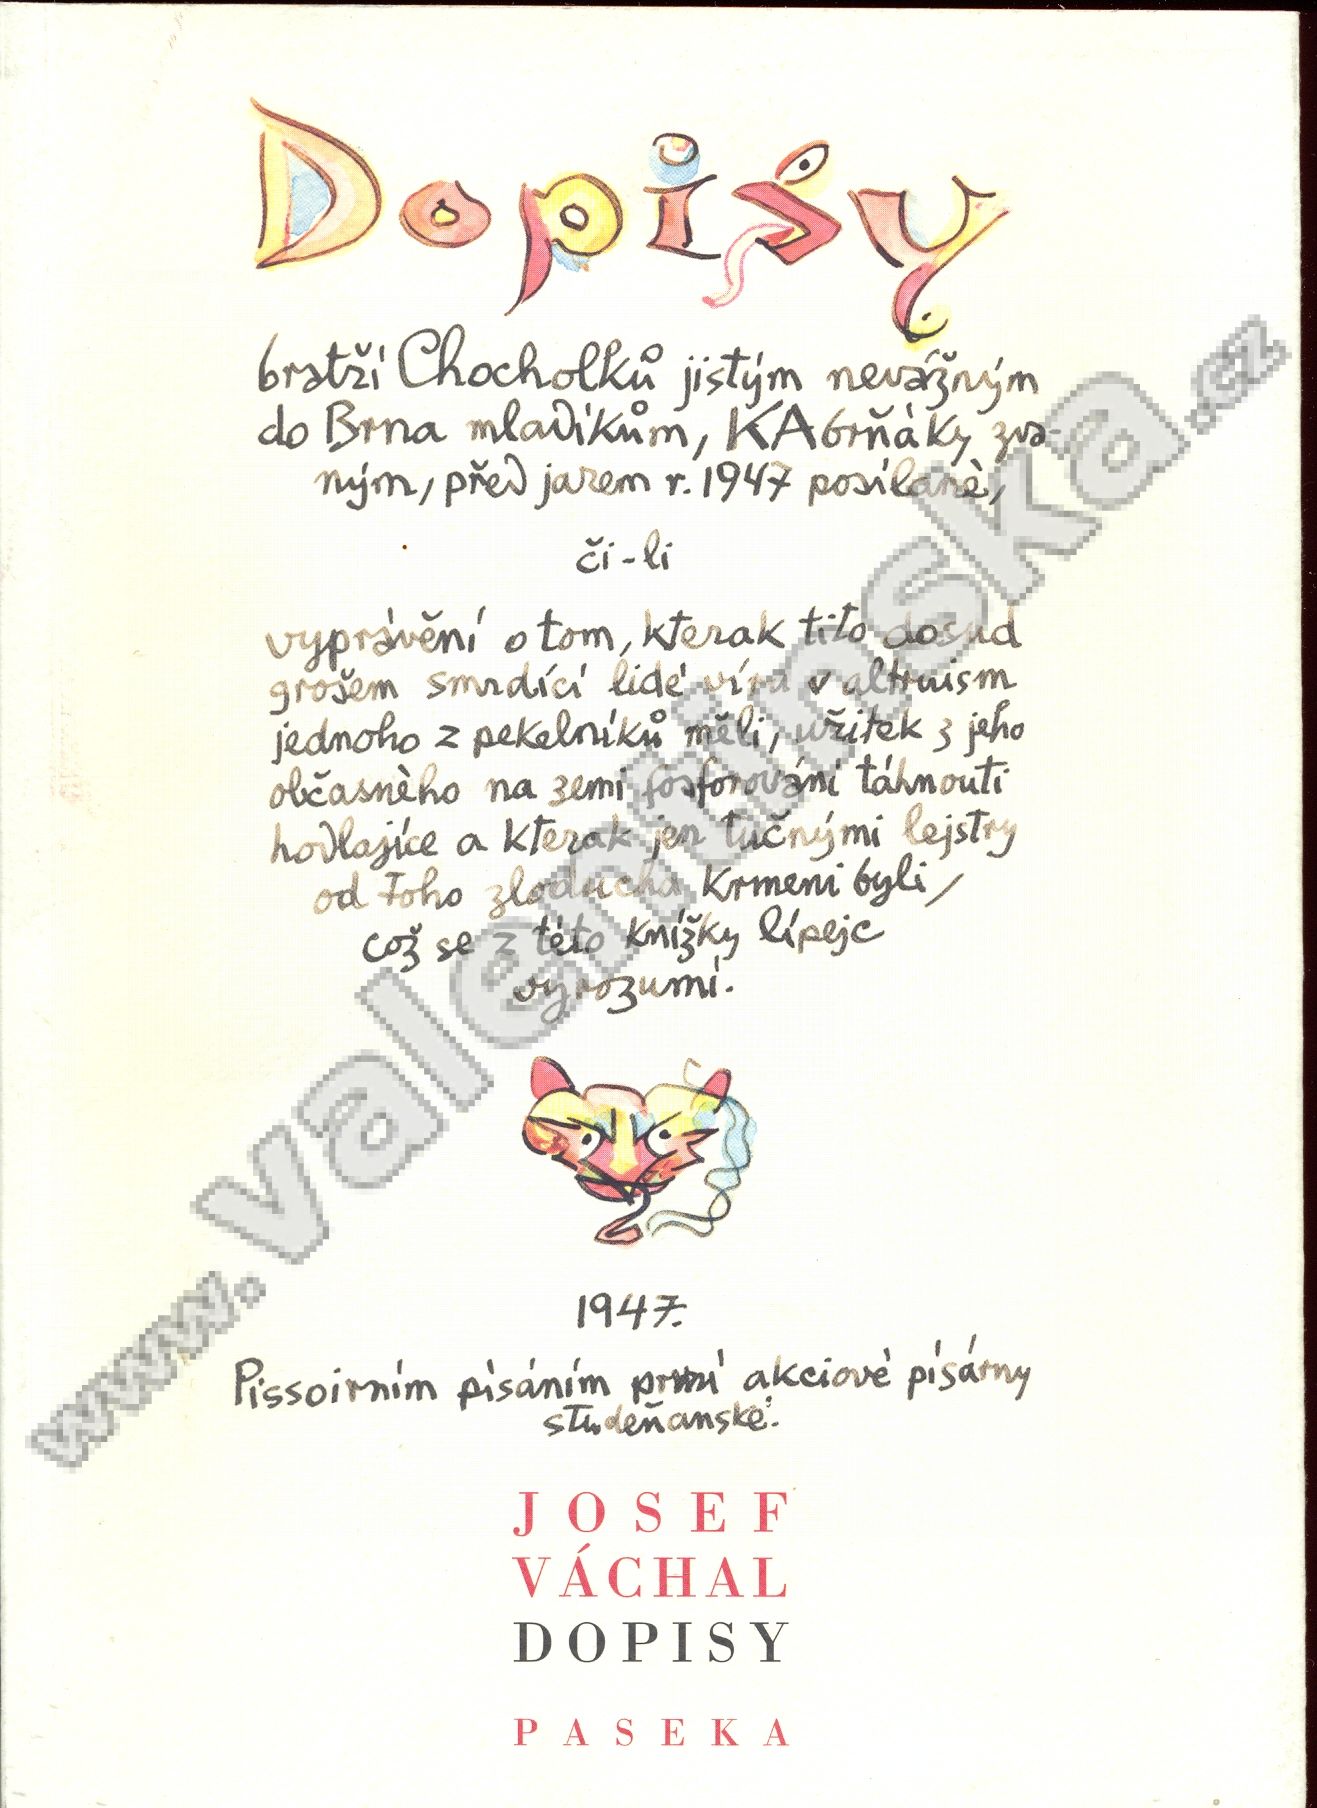 Dopisy
bratří Chocholků jistým nevážným
do Brna mladíkům, KAbrňáky zva-
ným, před jarem r. 1947 posílané,
či-li
vyprávění o tom, kterak tito dosud
grošem smrdící lidé víru v altruism
jednoho z pekelníků měli, užitek z jeho
občasného na zemi fosforování táhnouti
hodlajíce a kterak jen tučnými lejstry
od toho zloducha krmeni byli,
což se z této knížky lípeje
vyrozumí.
1947.
Pissoirním písáním první akciové písárny
studeňanské.
JOSEF
VÁCHAL
DOPISY
PASEKA
www.valentinska.cz